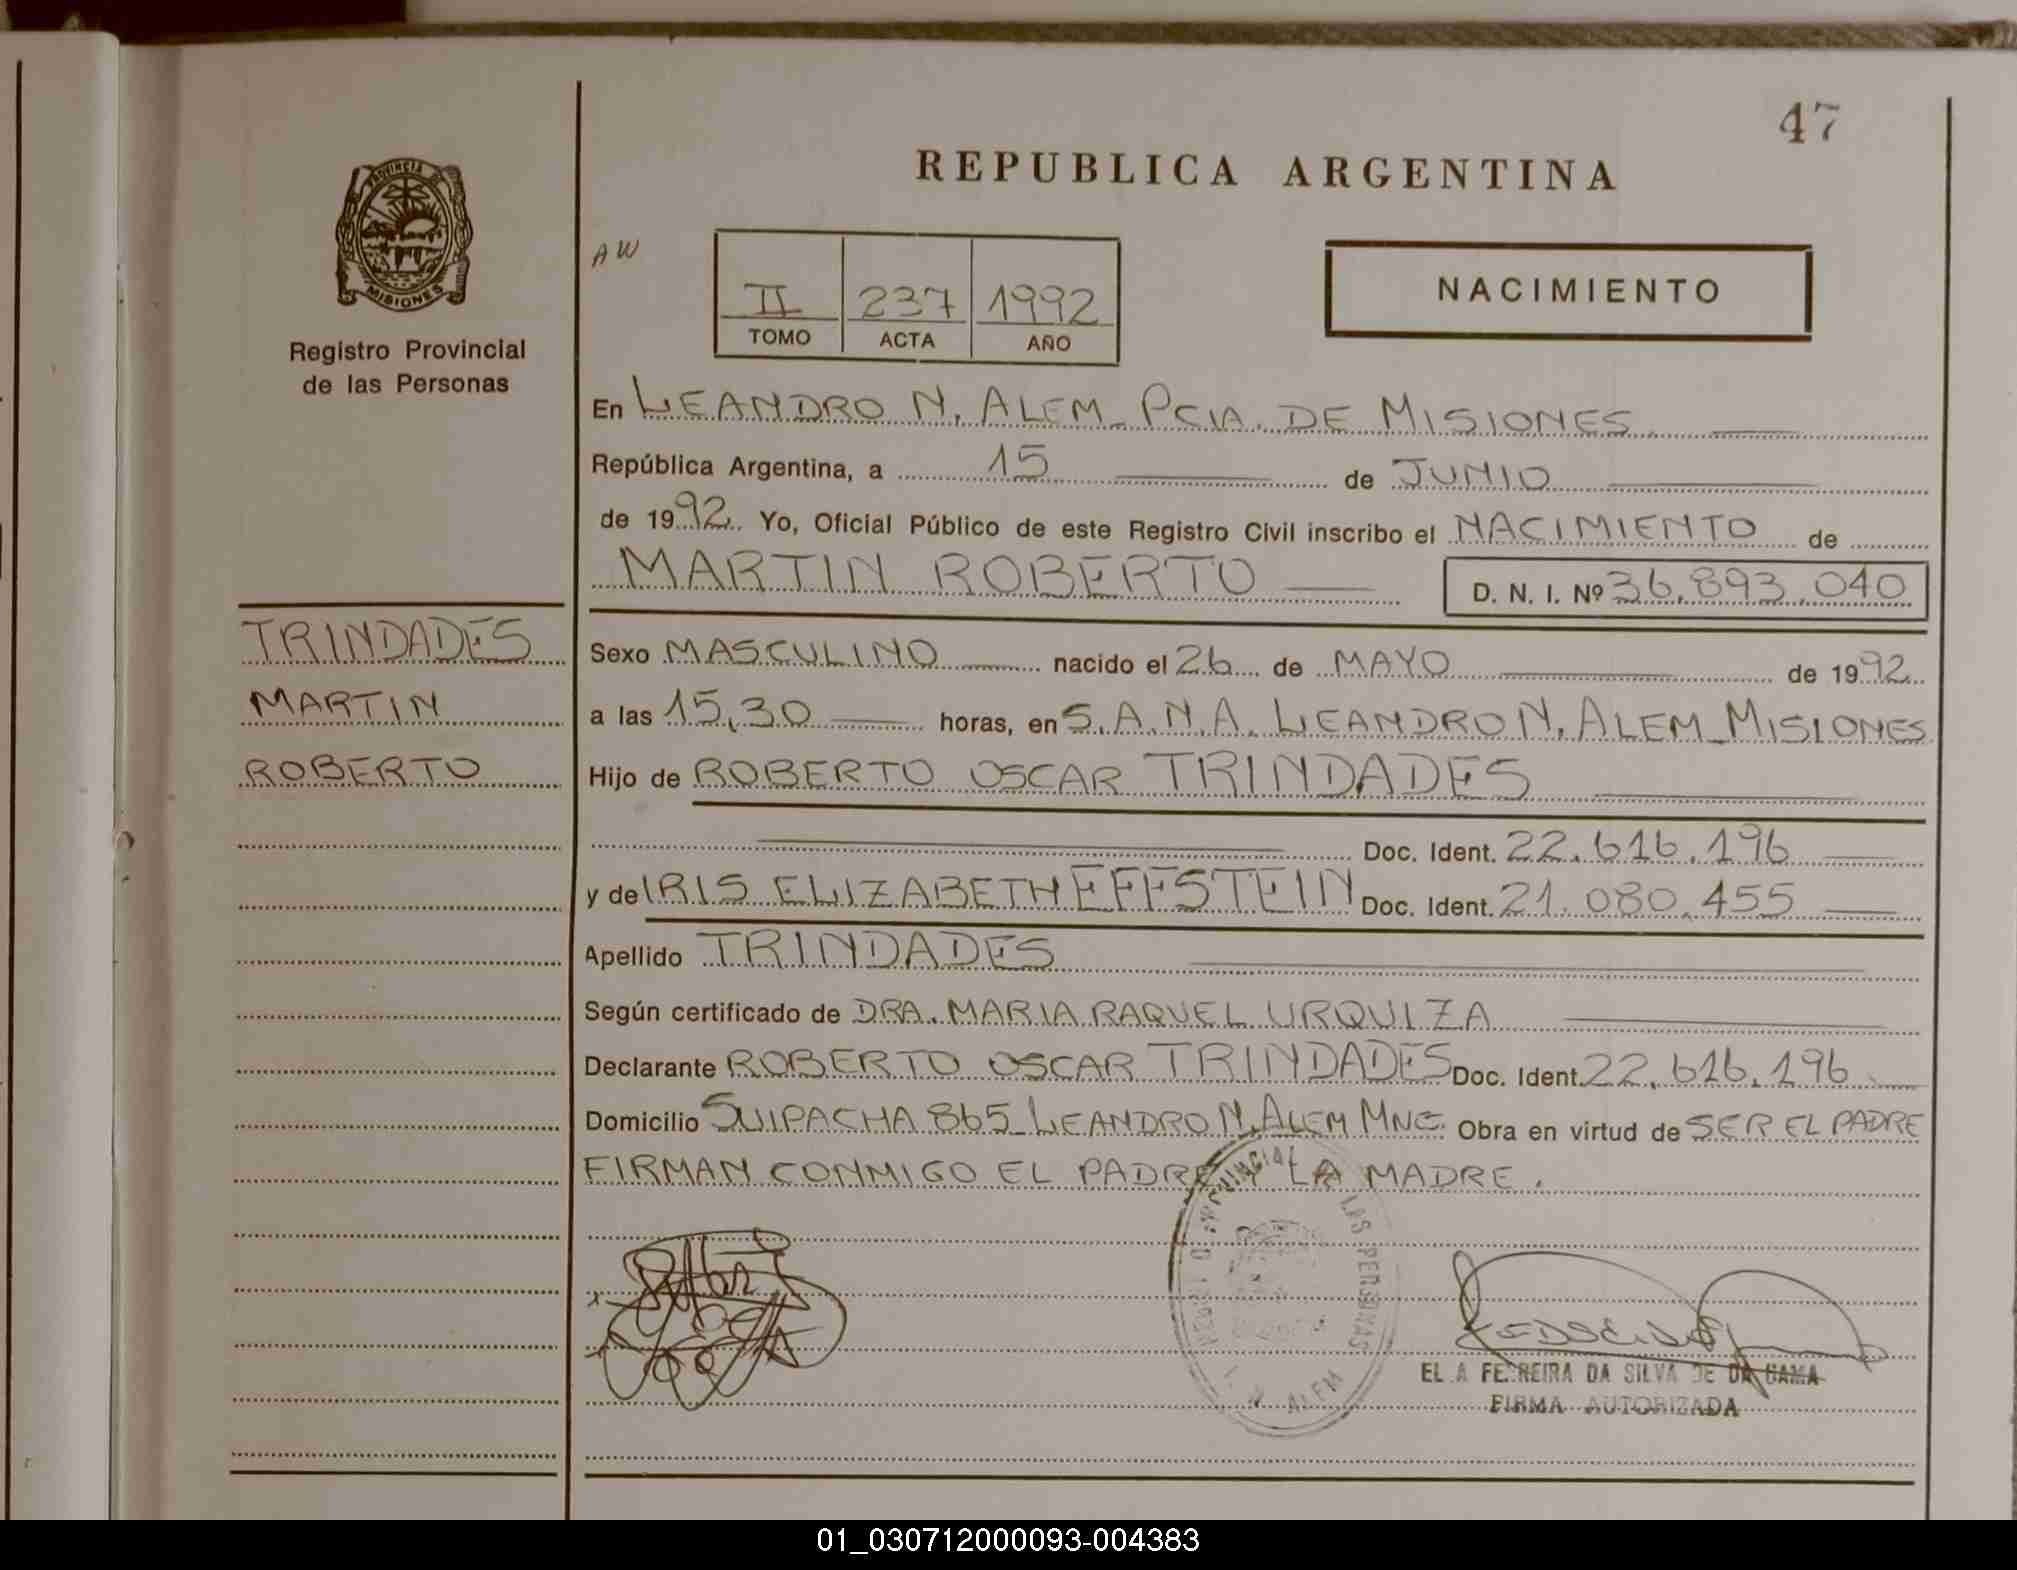 47
REPUBLICA ARGENTINA
PROVINCIA DE
MISIONES
Registro Provincial
de las Personas
AW
II 237 1992
TOMO ACTA AÑO
NACIMIENTO
En LEANDRO N. ALEM - PCIA. DE MISIONES.
República Argentina, a 15 de JUNIO
de 1992. Yo, Oficial Público de este Registro Civil inscribo el NACIMIENTO de
MARTIN ROBERTO D. N. I. Nº 36.893.040
TRINDADES
MARTIN
ROBERTO
Sexo MASCULINO nacido el 26 de MAYO de 1992
a las 15,30 horas, en S.A.N.A. LEANDRO N. ALEM - MISIONES
Hijo de ROBERTO OSCAR TRINDADES
Doc. Ident. 22.616.196
y de IRIS ELIZABETH EFFSTEIN Doc. Ident. 21.080.455
Apellido TRINDADES
Según certificado de DRA. MARIA RAQUEL URQUIZA
Declarante ROBERTO OSCAR TRINDADES Doc. Ident. 22.616.196
Domicilio SUIPACHA 865 - LEANDRO N. ALEM MNES. Obra en virtud de SER EL PADRE
FIRMAN CONMIGO EL PADRE Y LA MADRE.
PROVINCIAL LAS PERSONAS
N. ALEM
FERREIRA DA SILVA DE DA GAMA
FIRMA AUTORIZADA
01_030712000093-004383